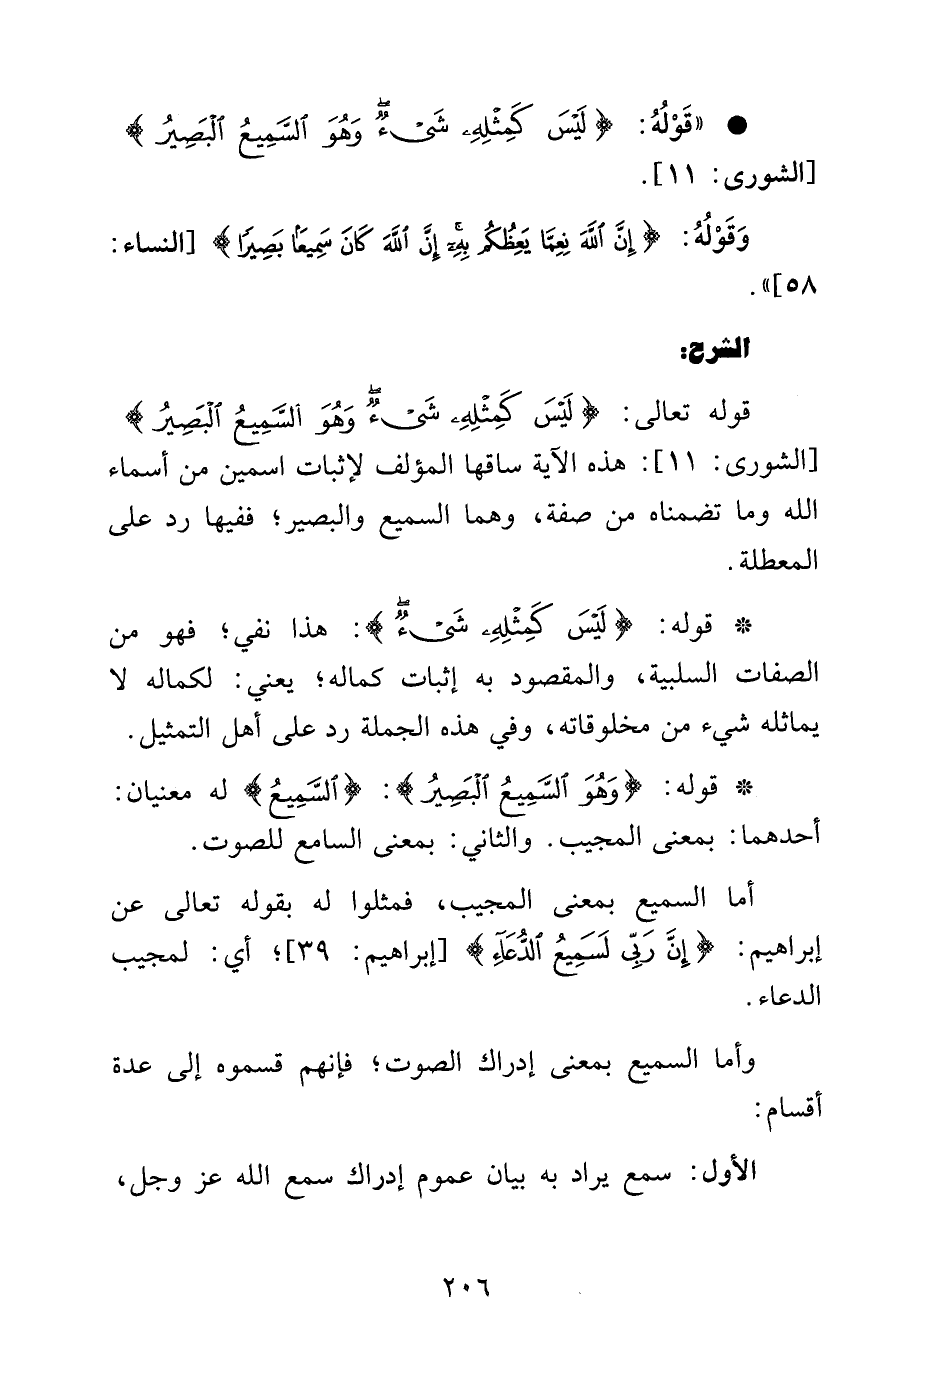 ● «قَوْلُهُ: ﴿ لَيْسَ كَمِثْلِهِۦ شَىْءٌۖ وَهُوَ ٱلسَّمِيعُ ٱلْبَصِيرُ ﴾
[الشورى: ١١].
وَقَوْلُهُ: ﴿ إِنَّ ٱللَّهَ نِعِمَّا يَعِظُكُم بِهِۦٓۗ إِنَّ ٱللَّهَ كَانَ سَمِيعًۢا بَصِيرًا ﴾ [النساء:
٥٨]».
الشرح:
قوله تعالى: ﴿ لَيْسَ كَمِثْلِهِۦ شَىْءٌۖ وَهُوَ ٱلسَّمِيعُ ٱلْبَصِيرُ ﴾
[الشورى: ١١]: هذه الآية ساقها المؤلف لإثبات اسمين من أسماء
الله وما تضمناه من صفة، وهما السميع والبصير؛ ففيها رد على
المعطلة.
* قوله: ﴿ لَيْسَ كَمِثْلِهِۦ شَىْءٌۖ ﴾: هذا نفي؛ فهو من
الصفات السلبية، والمقصود به إثبات كماله؛ يعني: لكماله لا
يماثله شيء من مخلوقاته، وفي هذه الجملة رد على أهل التمثيل.
* قوله: ﴿وَهُوَ ٱلسَّمِيعُ ٱلْبَصِيرُ ﴾: ﴿ٱلسَّمِيعُ ﴾ له معنيان:
أحدهما: بمعنى المجيب. والثاني: بمعنى السامع للصوت.
أما السميع بمعنى المجيب، فمثلوا له بقوله تعالى عن
إبراهيم: ﴿ إِنَّ رَبِّى لَسَمِيعُ ٱلدُّعَآءِ ﴾ [إبراهيم: ٣٩]؛ أي: لمجيب
الدعاء.
وأما السميع بمعنى إدراك الصوت؛ فإنهم قسموه إلى عدة
أقسام:
الأول: سمع يراد به بيان عموم إدراك سمع الله عز وجل،
٢٠٦